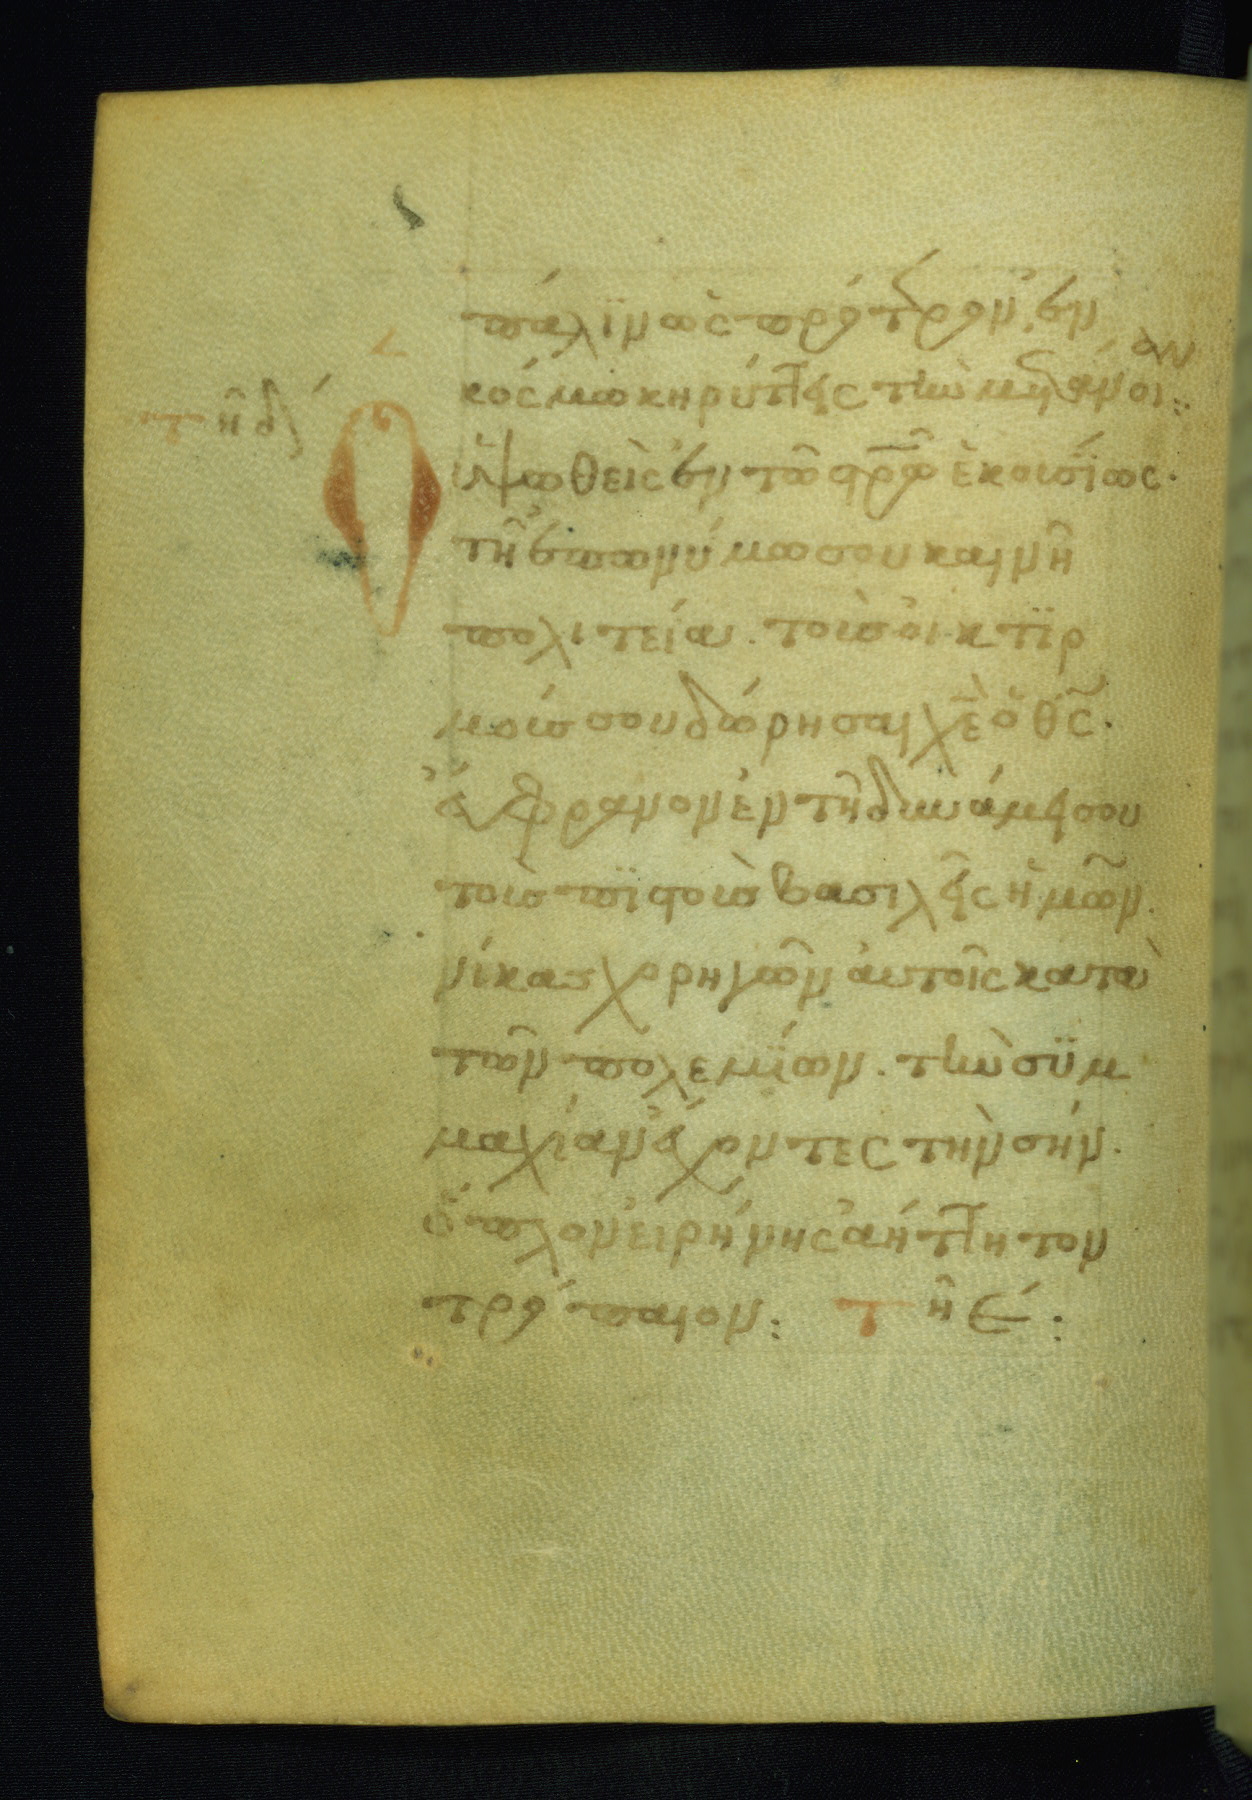 πάλιν ὡς πρότερον, ἐν
κόσμω κηρύττεις τὴν μετάνοιαν:
Ὁ ὑψωθεὶς ἐν τῶ στρῶ ἑκουσίως·
τῆ ἐπωνύμω σου καινῆ
πολιτεία· τοὺς οἰκτιρ
μούς σου δώρησαι χὲ ὁ θς·
εὔφρανον ἐν τῆ δυνάμει σου
τοὺς πιστοὺς βασιλεῖς ἡμῶν·
νίκας χορηγῶν αὐτοῖς κατὰ
τῶν πολεμίων· τὴν συμ
μαχίαν ἔχοντες τὴν σήν·
ὅπλον εἰρήνης ἀήττητον
τρόπαιον: